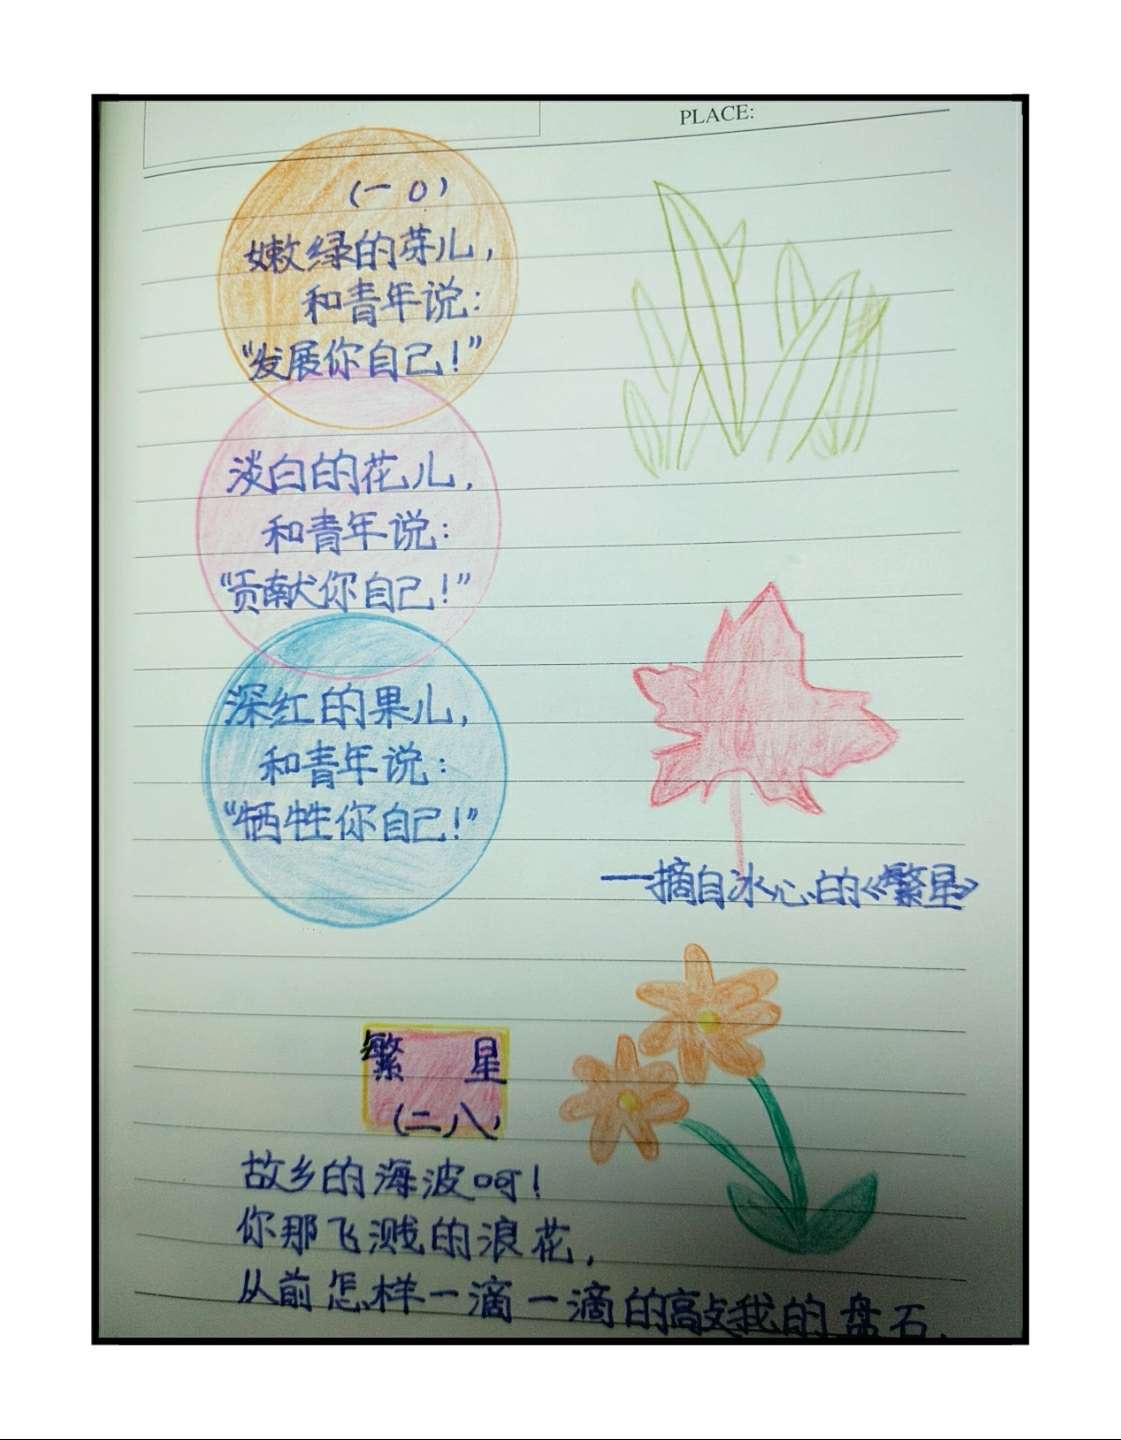 PLACE:
(一0)
嫩绿的芽儿，
和青年说：
“发展你自己！”
淡白的花儿，
和青年说：
“贡献你自己！”
深红的果儿，
和青年说：
“牺牲你自己！”
——摘自冰心的《繁星》
繁 星
(二八)
故乡的海波呵！
你那飞溅的浪花，
从前怎样一滴一滴的敲我的盘石，